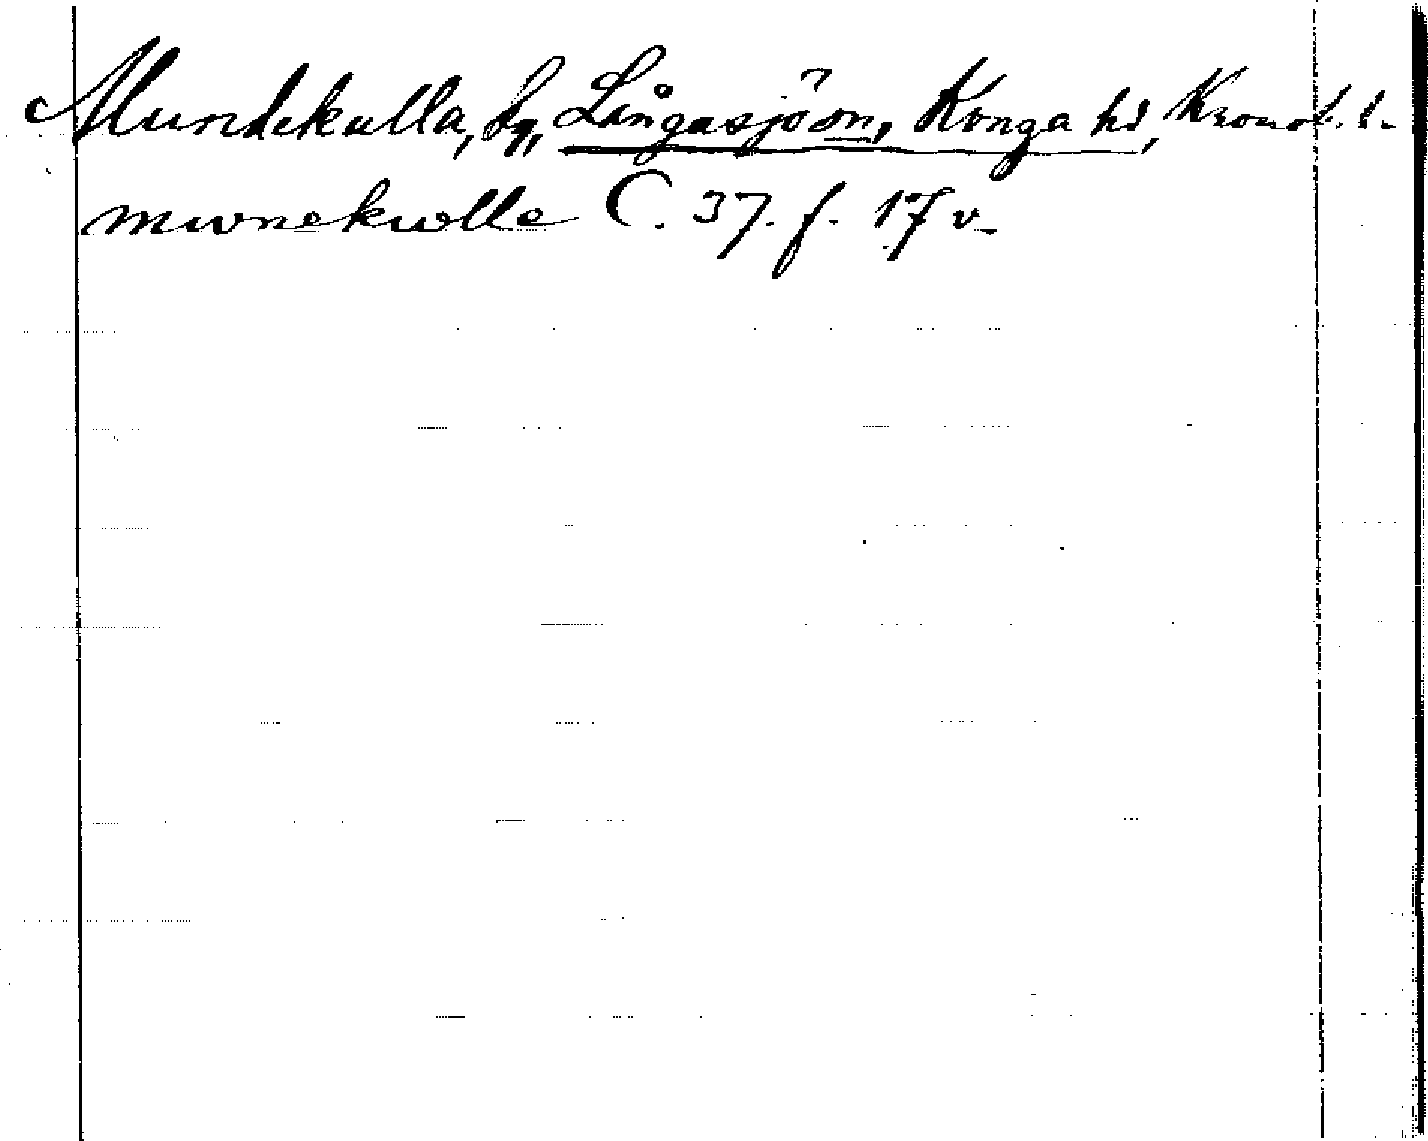 Mundekulla, by, Långasjö sn, Konga hd, Kronob. l.
mwnekwlle C. 37. f. 17 v.